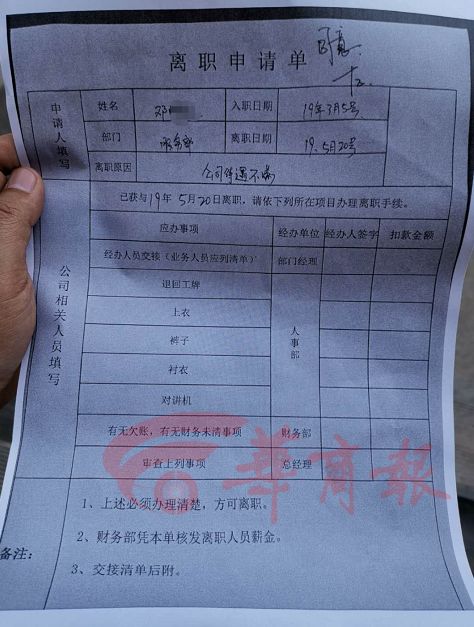 同意
离职申请单
申请人填写
姓名 邓 入职日期 19年3月5号
部门 服务部 离职日期 19.5月20号
离职原因 公司待遇不满
已获与19年5月20日离职,请依下列所在项目办理离职手续。
公司相关人员填写
应办事项 经办单位 经办人签字 扣款金额
经办人员交接(业务人员应列清单) 部门经理
退回工牌
上衣
裤子
衬衣
对讲机
人事部
有无欠账,有无财务未清事项 财务部
审查上列事项 总经理
華商報
备注:
1、上述必须办理清楚,方可离职。
2、财务部凭本单核发离职人员薪金。
3、交接清单后附。